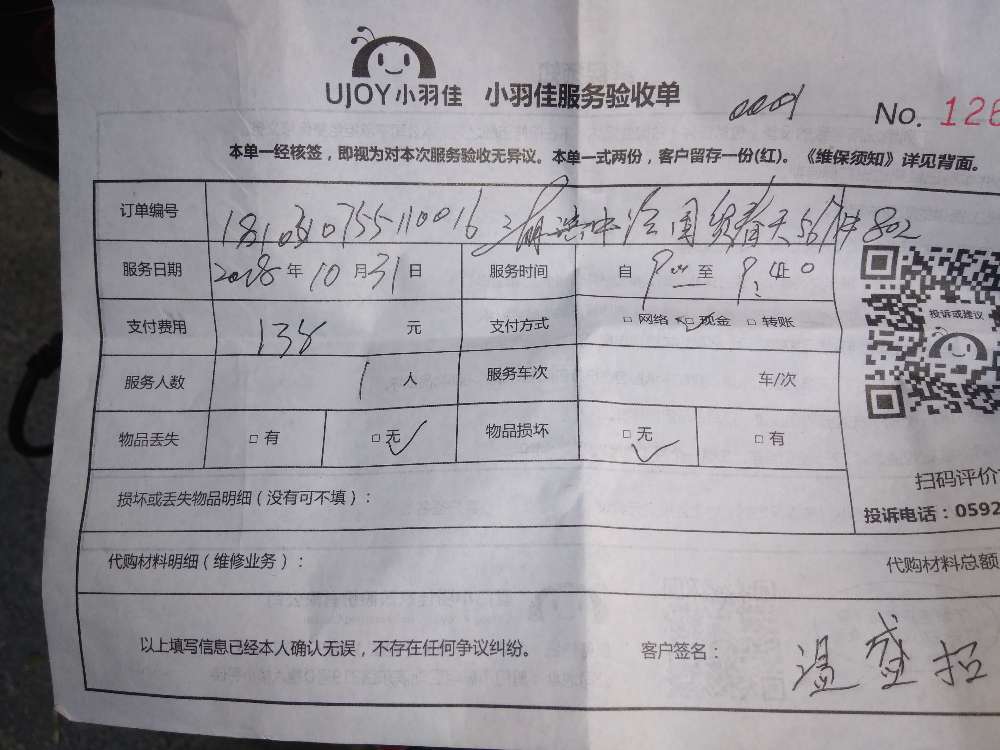 UJOY小羽佳 小羽佳服务验收单
No. 126
本单一经核签，即视为对本次服务验收无异议。本单一式两份，客户留存一份(红)。《维保须知》详见背面。
订单编号 1810310755110016 802
服务日期 2018年10月31日 服务时间 自9 00至9:40
支付费用 138 元 支付方式 □网络 □现金 □转账
投诉或建议
服务人数 1人 服务车次 车/次
物品丢失 □有 □无 物品损坏 □无 □有
扫码评价
损坏或丢失物品明细（没有可不填）：
投诉电话：0592
代购材料明细（维修业务）： 代购材料总额
以上填写信息已经本人确认无误，不存在任何争议纠纷。 客户签名： 温盛招